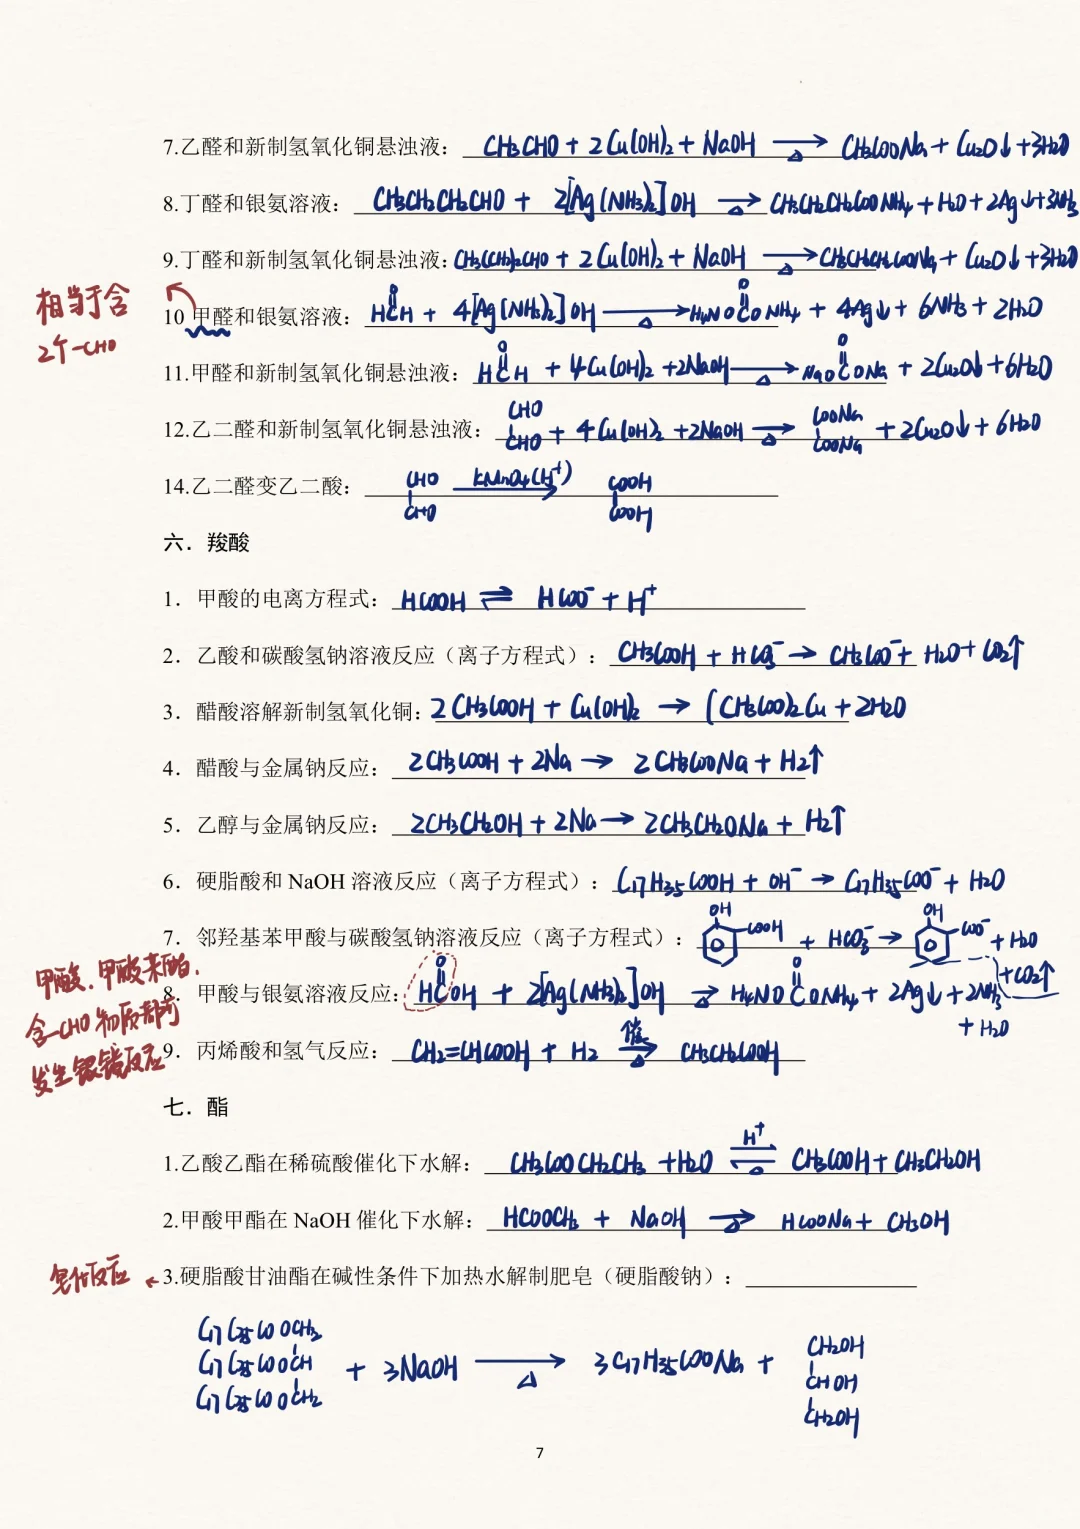 7.乙醛和新制氢氧化铜悬浊液： CH3CHO + 2Cu(OH)2 + NaOH →△ CH3COONa + Cu2O↓ + 3H2O
8.丁醛和银氨溶液： CH3CH2CH2CHO + 2[Ag(NH3)2]OH →△ CH3CH2CH2COONH4 + H2O + 2Ag↓ + 3NH3
9.丁醛和新制氢氧化铜悬浊液： CH3(CH2)2CHO + 2Cu(OH)2 + NaOH →△ CH3CH2CH2COONa + Cu2O↓ + 3H2O
相当于含
2个-CHO
10 甲醛和银氨溶液： HCH(=O) + 4[Ag(NH3)2]OH →△ H4NOC(=O)ONH4 + 4Ag↓ + 6NH3 + 2H2O
11.甲醛和新制氢氧化铜悬浊液： HCH(=O) + 4Cu(OH)2 + 2NaOH →△ NaOC(=O)ONa + 2Cu2O↓ + 6H2O
12.乙二醛和新制氢氧化铜悬浊液： CHO-CHO + 4Cu(OH)2 + 2NaOH →△ COONa-COONa + 2Cu2O↓ + 6H2O
14.乙二醛变乙二酸： CHO-CHO →KMnO4(H+) COOH-COOH
六．羧酸
1．甲酸的电离方程式： HCOOH ⇌ HCOO⁻ + H⁺
2．乙酸和碳酸氢钠溶液反应（离子方程式）： CH3COOH + HCO3⁻ → CH3COO⁻ + H2O + CO2↑
3．醋酸溶解新制氢氧化铜： 2CH3COOH + Cu(OH)2 → (CH3COO)2Cu + 2H2O
4．醋酸与金属钠反应： 2CH3COOH + 2Na → 2CH3COONa + H2↑
5．乙醇与金属钠反应： 2CH3CH2OH + 2Na → 2CH3CH2ONa + H2↑
6．硬脂酸和 NaOH 溶液反应（离子方程式）： C17H35COOH + OH⁻ → C17H35COO⁻ + H2O
7．邻羟基苯甲酸与碳酸氢钠溶液反应（离子方程式）： OH -COOH + HCO3⁻ → OH -COO⁻ + H2O + CO2↑
甲酸、甲酸某酯、
含-CHO 物质都可
发生银镜反应
8．甲酸与银氨溶液反应： HCOH(=O) + 2[Ag(NH3)2]OH →△ H4NOC(=O)ONH4 + 2Ag↓ + 2NH3 + H2O
9．丙烯酸和氢气反应： CH2=CHCOOH + H2 →催△ CH3CH2COOH
七．酯
1.乙酸乙酯在稀硫酸催化下水解： CH3COOCH2CH3 + H2O ⇌H⁺△ CH3COOH + CH3CH2OH
2.甲酸甲酯在 NaOH 催化下水解： HCOOCH3 + NaOH →△ HCOONa + CH3OH
皂化反应 ← 3.硬脂酸甘油酯在碱性条件下加热水解制肥皂（硬脂酸钠）：
C17C35COOCH2 CH2OH
C17C35COOCH + 3NaOH →△ 3C17H35COONa + CHOH
C17C35COOCH2 CH2OH
7